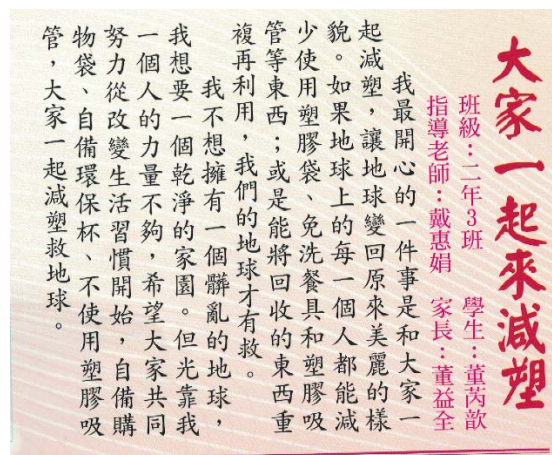 大家一起來減塑
班級：二年3班　學生：董芮歆
指導老師：戴惠娟　家長：董益全
我最開心的一件事是和大家一
起減塑，讓地球變回原來美麗的樣
貌。如果地球上的每一個人都能減
少使用塑膠袋、免洗餐具和塑膠吸
管等東西；或是能將回收的東西重
複再利用，我們的地球才有救。
我不想擁有一個髒亂的地球，
我想要一個乾淨的家園。但光靠我
一個人的力量不夠，希望大家共同
努力從改變生活習慣開始，自備購
物袋、自備環保杯、不使用塑膠吸
管，大家一起減塑救地球。